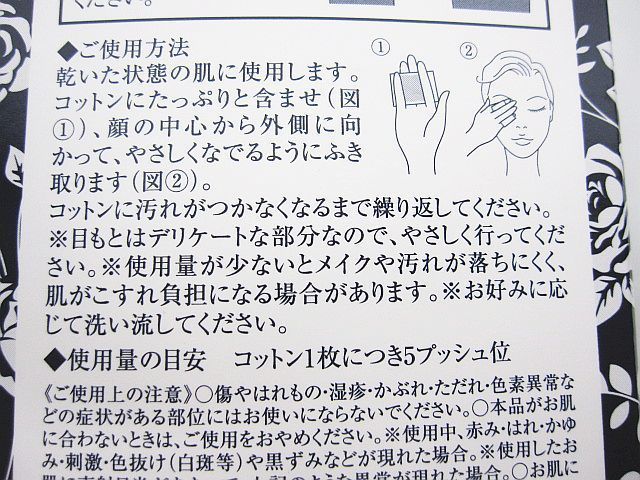 ください。
◆ご使用方法
① ②
乾いた状態の肌に使用します。
コットンにたっぷりと含ませ(図
①)、顔の中心から外側に向
かって、やさしくなでるようにふき
取ります(図②)。
コットンに汚れがつかなくなるまで繰り返してください。
※目もとはデリケートな部分なので、やさしく行ってくだ
さい。※使用量が少ないとメイクや汚れが落ちにくく、
肌がこすれ負担になる場合があります。※お好みに応
じて洗い流してください。
◆使用量の目安 コットン1枚につき5プッシュ位
《ご使用上の注意》○傷やはれもの・湿疹・かぶれ・ただれ・色素異常な
どの症状がある部位にはお使いにならないでください。○本品がお肌
に合わないときは、ご使用をおやめください。※使用中、赤み・はれ・かゆ
み・刺激・色抜け(白斑等)や黒ずみなどが現れた場合。※使用したお
肌に直射日光があたって、上記のような異常が現れた場合。○お肌に